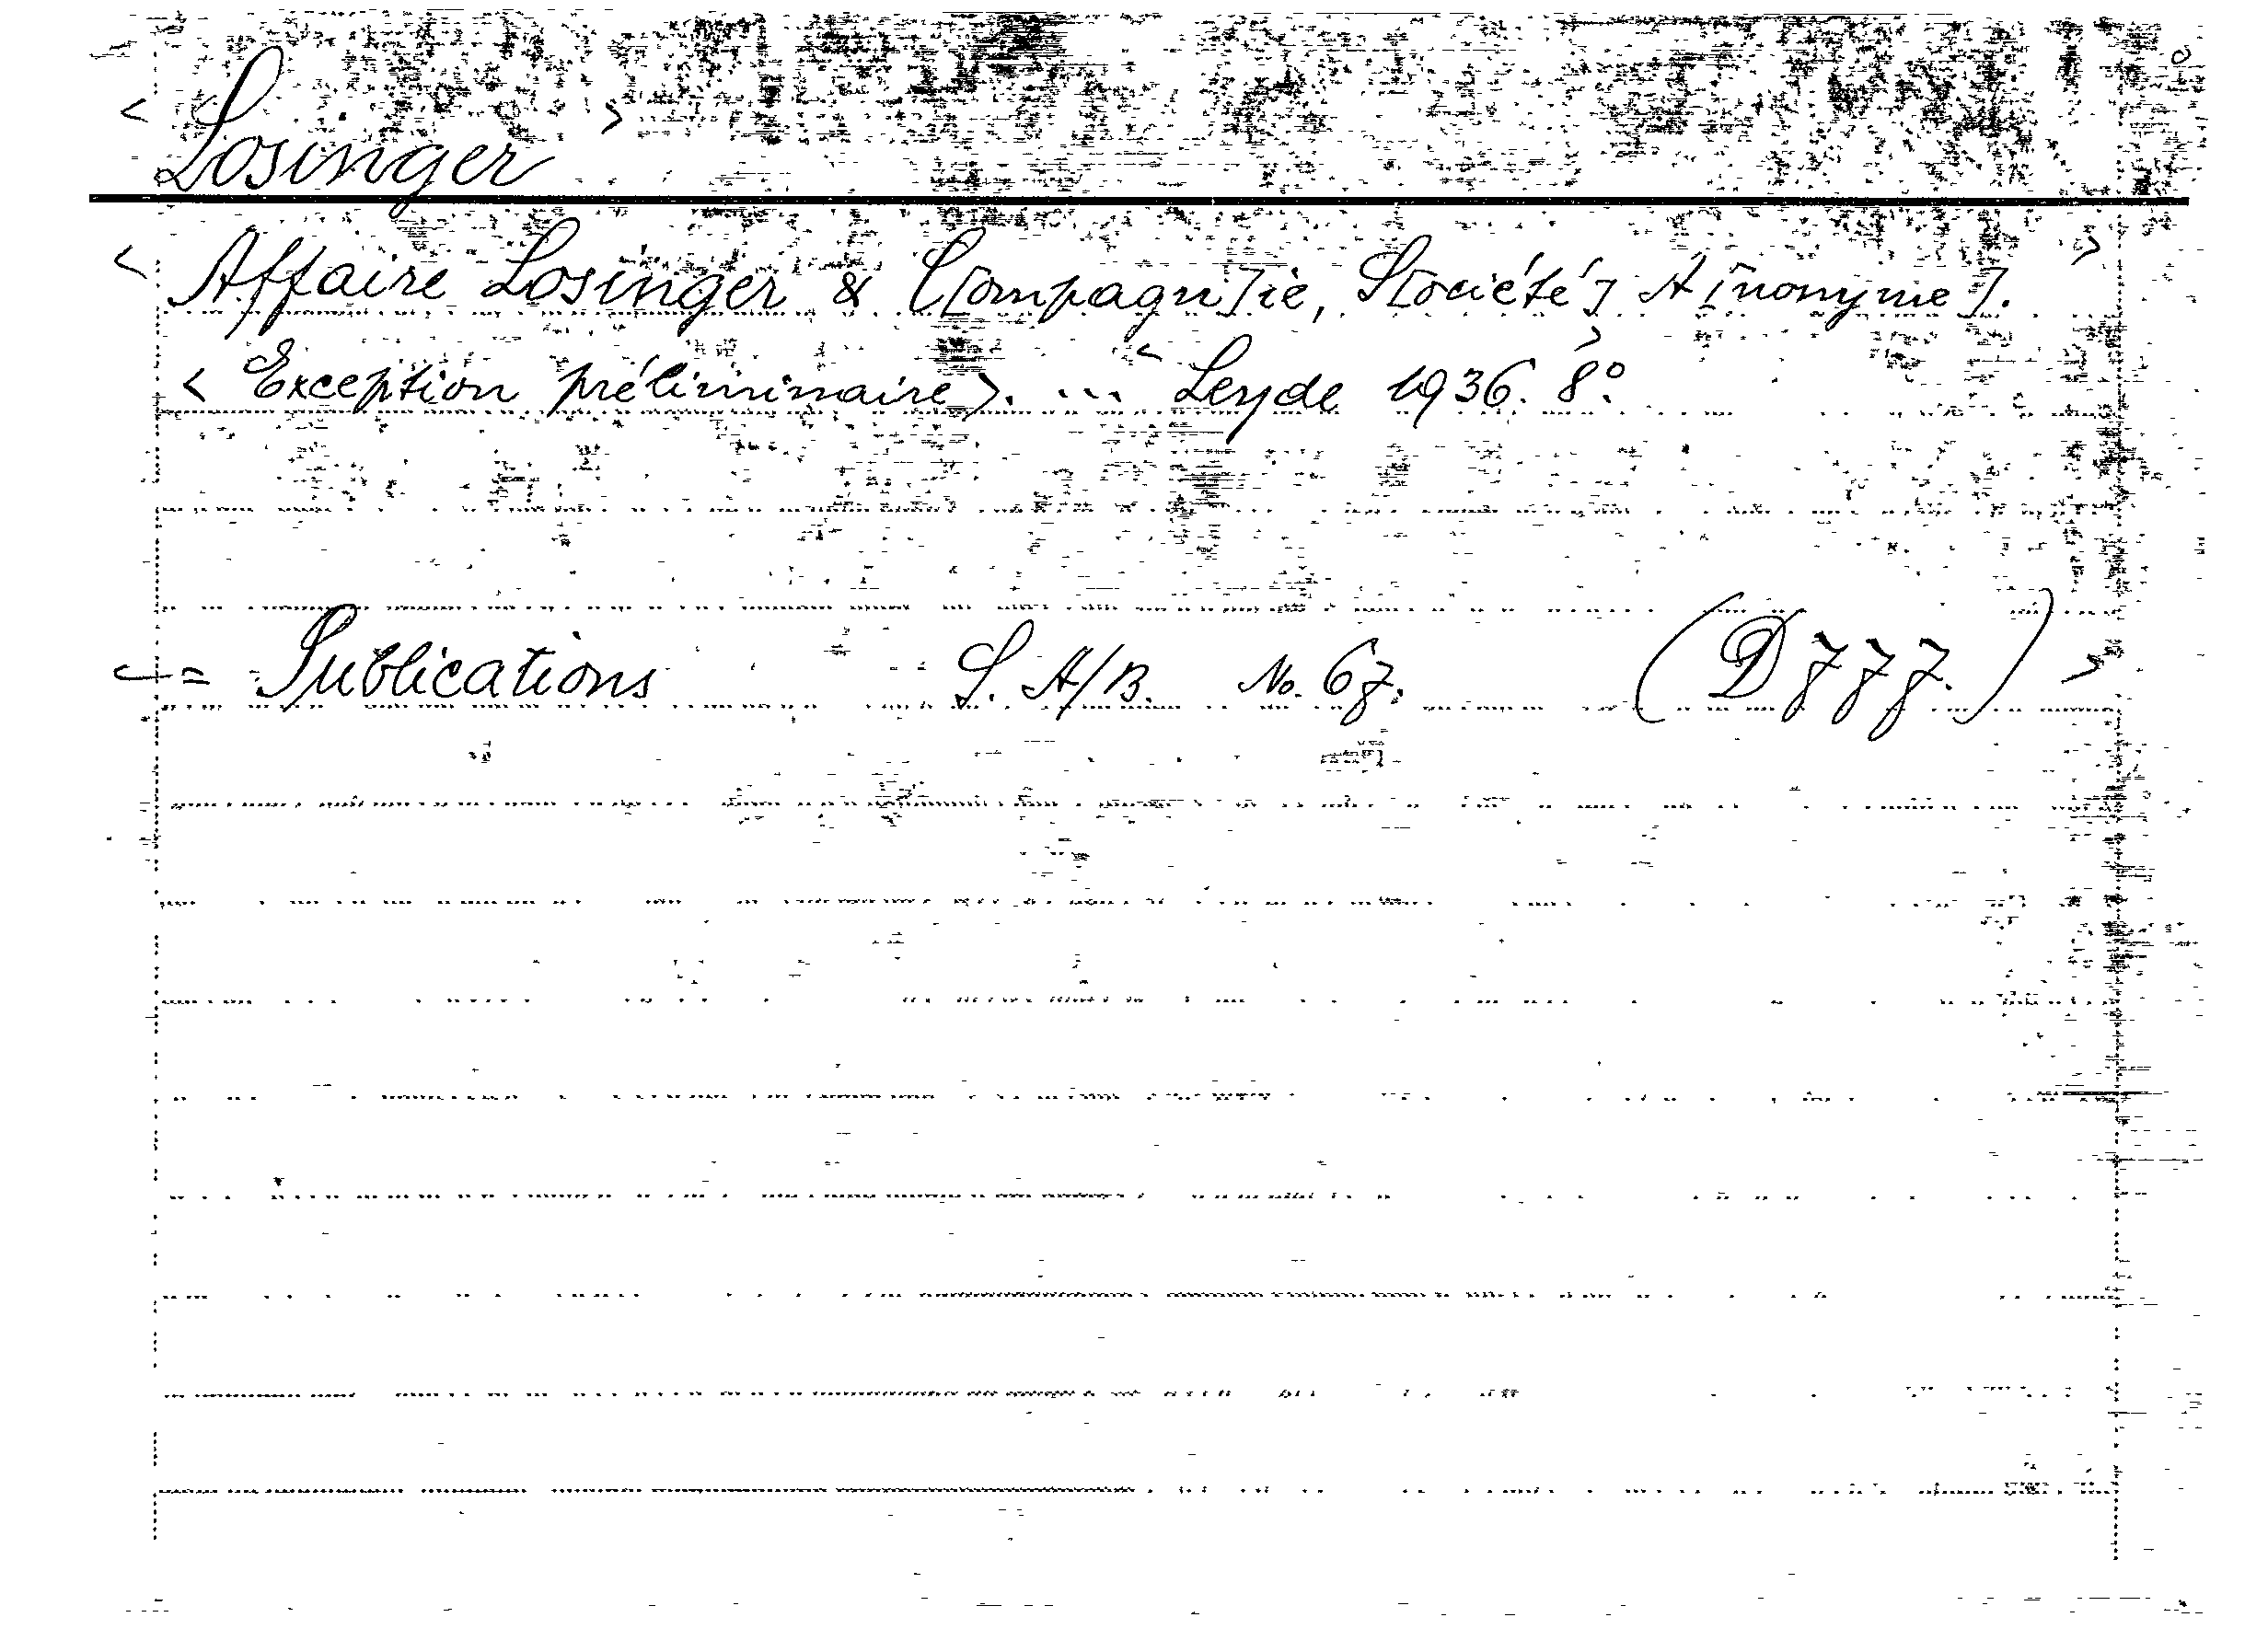 < Losinger >
< Affaire Losinger & C[ompagn]ie, S[ociété] A[nonyme]. >
< Exception préliminaire >. ... < Leyde 1936. 8°. >
< = Publications S. A/B. No. 67. (D 777.) >